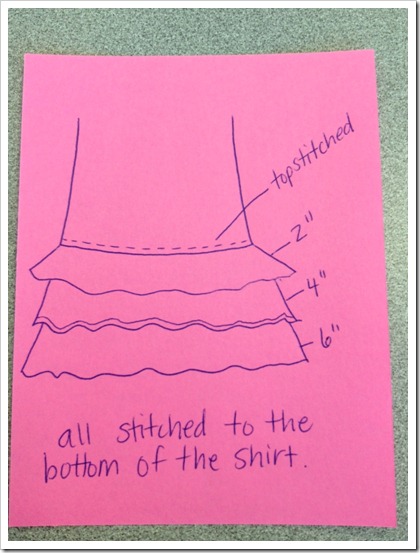 topstitched
2"
4"
6"
all stitched to the
bottom of the shirt.